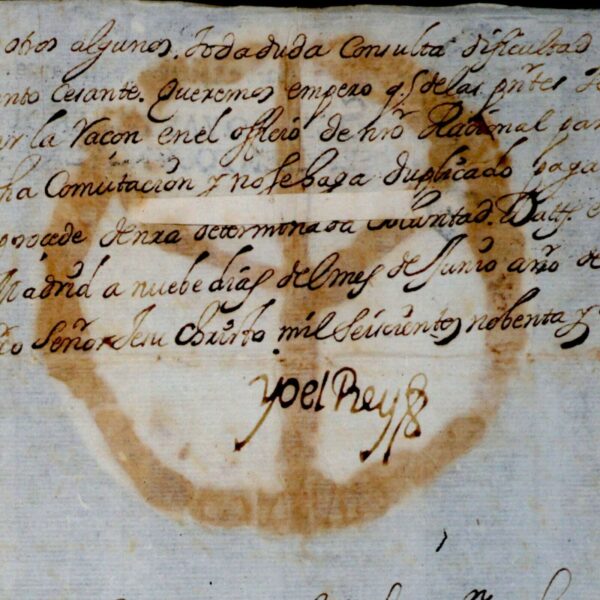 otros algunos. toda duda Consulta dificultad
ento Cesante. Queremos empero q. se de las pñtes
la Racon en el officio de nrõ Racional
ha Comutacion y no se haga duplicado paga
procede de nrã determinada Voluntad. Datt
Madrid a nuebe dias del mes de Junio año de
Señor Jesu Christo mil seiscientos nobenta y
Yo el Rey